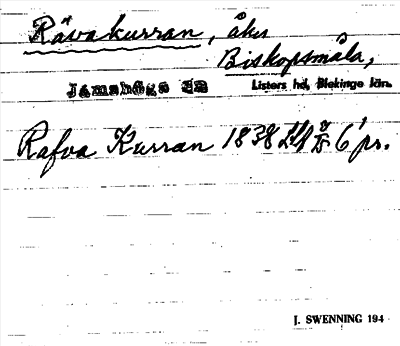 Rävakurran, åker
Biskopsmåla,
Jämshögs sn Listers hd, Blekinge län.
Rafva Kurran 1838 6 pr.
J. SWENNING 194